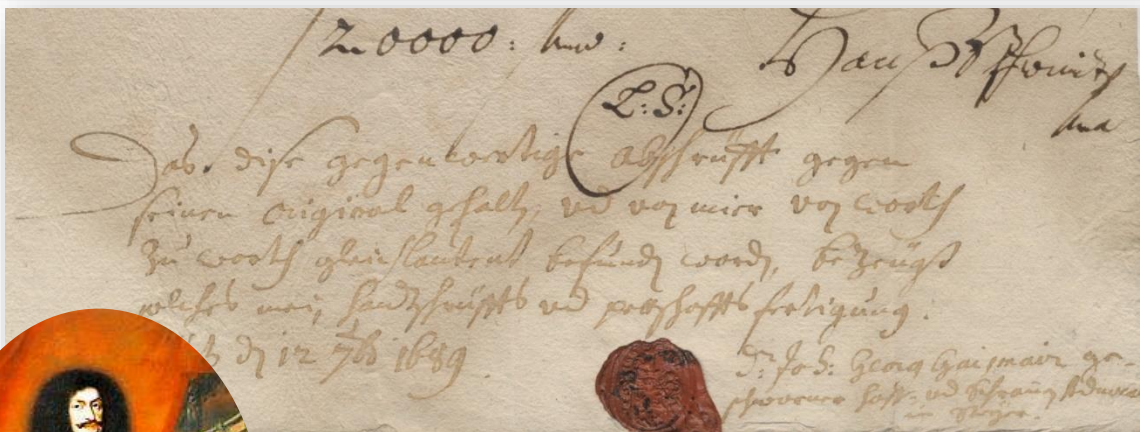 20000:
Hanß
L: S:
Das dise gegenwertige Abschrüfft gegen
seinen original ghalt, vnd von mier von worth
zu worth gleichlautent befundn wordn, bezeugt
welches mein handtschruffts vnd pettschaffts fertigung.
dn 12 7bs 1689.
Joh: Georg Gaismair ge-
schworner Hoff- vnd
in Steyer.